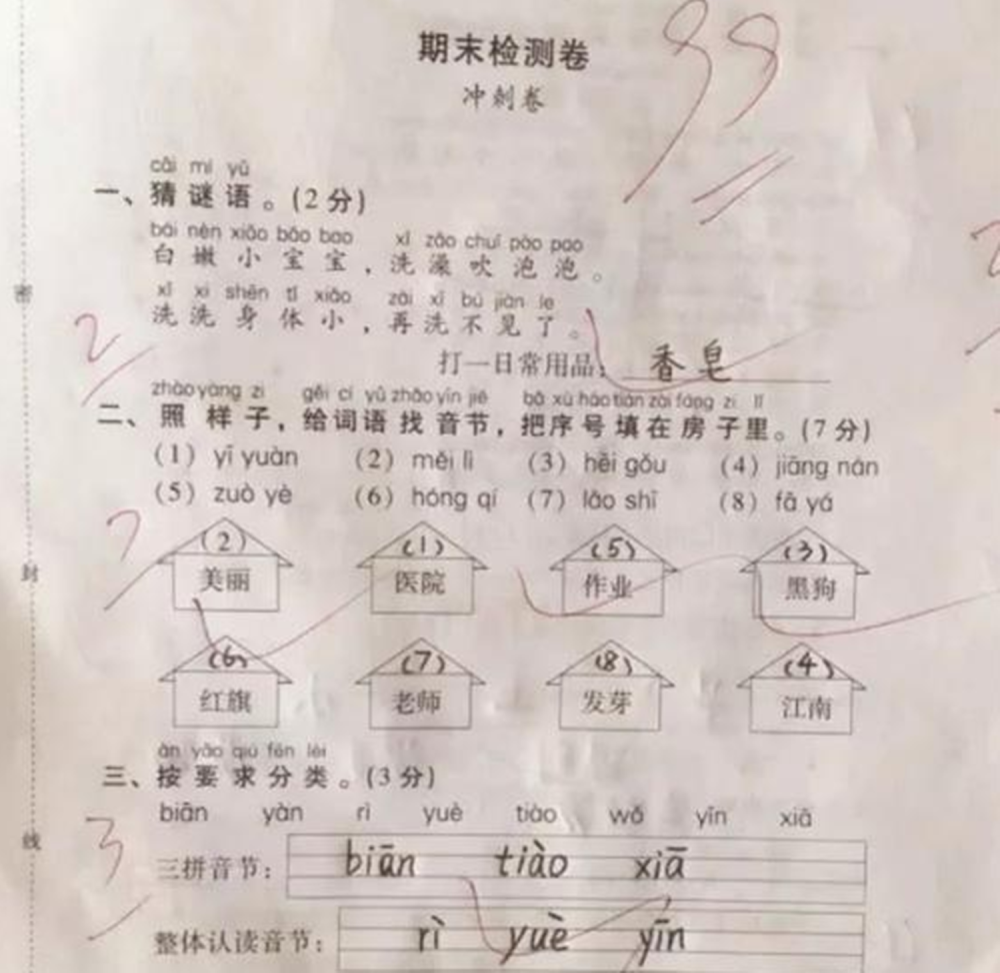 期末检测卷
冲刺卷
99
cāi mí yǔ
一、猜谜语。(2分)
bái nèn xiǎo bǎo bao xǐ zǎo chuī pào pao
白嫩小宝宝,洗澡吹泡泡。
xǐ xi shēn tǐ xiǎo zài xǐ bú jiàn le
洗洗身体小,再洗不见了。
2
打一日常用品: 香皂
zhào yàng zi gěi cí yǔ zhǎo yīn jié bǎ xù hào tián zài fáng zi lǐ
二、照样子,给词语找音节,把序号填在房子里。(7分)
(1) yī yuàn (2) měi lì (3) hēi gǒu (4) jiāng nán
(5) zuò yè (6) hóng qí (7) lǎo shī (8) fā yá
7
(2) (1) (5) (3)
美丽 医院 作业 黑狗
(6) (7) (8) (4)
红旗 老师 发芽 江南
àn yāo qiú fēn lèi
三、按要求分类。(3分)
biān yàn rì yuè tiào wǒ yīn xiā
3
三拼音节: biān tiào xiā
整体认读音节: rì yuè yīn
密
封
线